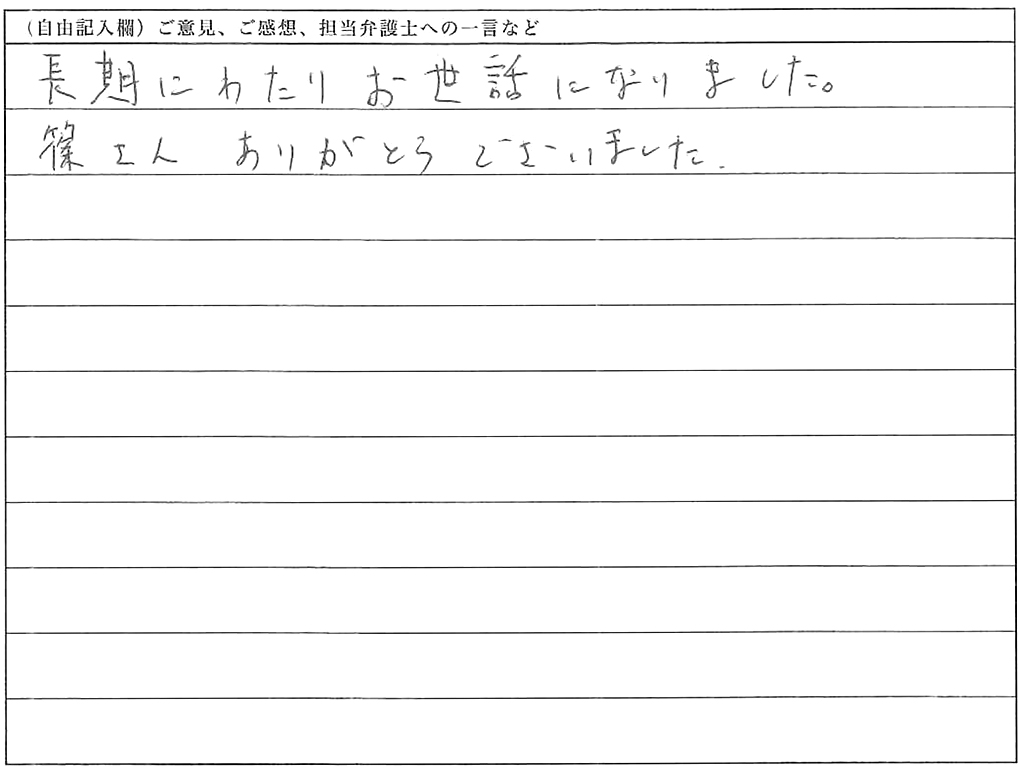 （自由記入欄）ご意見、ご感想、担当弁護士への一言など
長期にわたりお世話になりました。
篠さん ありがとう ございました.